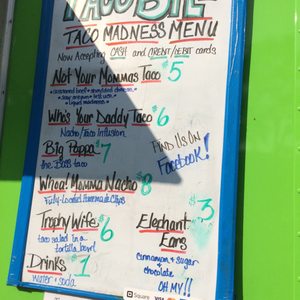 TACO BYTE
TACO MADNESS MENU
Now Accepting CASH and CREDIT/DEBIT cards
Not Your Mommas Taco $5
• seasoned beef • shredded cheese •
• sour cream • lettuce •
• liquid madness •
Who's Your Daddy Taco $6
Nacho/Taco Infusion
Big Poppa $7
the BOSS taco
FIND US ON
FACEBOOK!
Whoa! Momma Nacho $8
Fully-Loaded Homemade Chips
Trophy Wife $6
taco salad in a
tortilla bowl
Drinks $1
water • soda
Elephant $3
Ears
cinnamon & sugar
or
chocolate
OH MY!!
Square
VISA